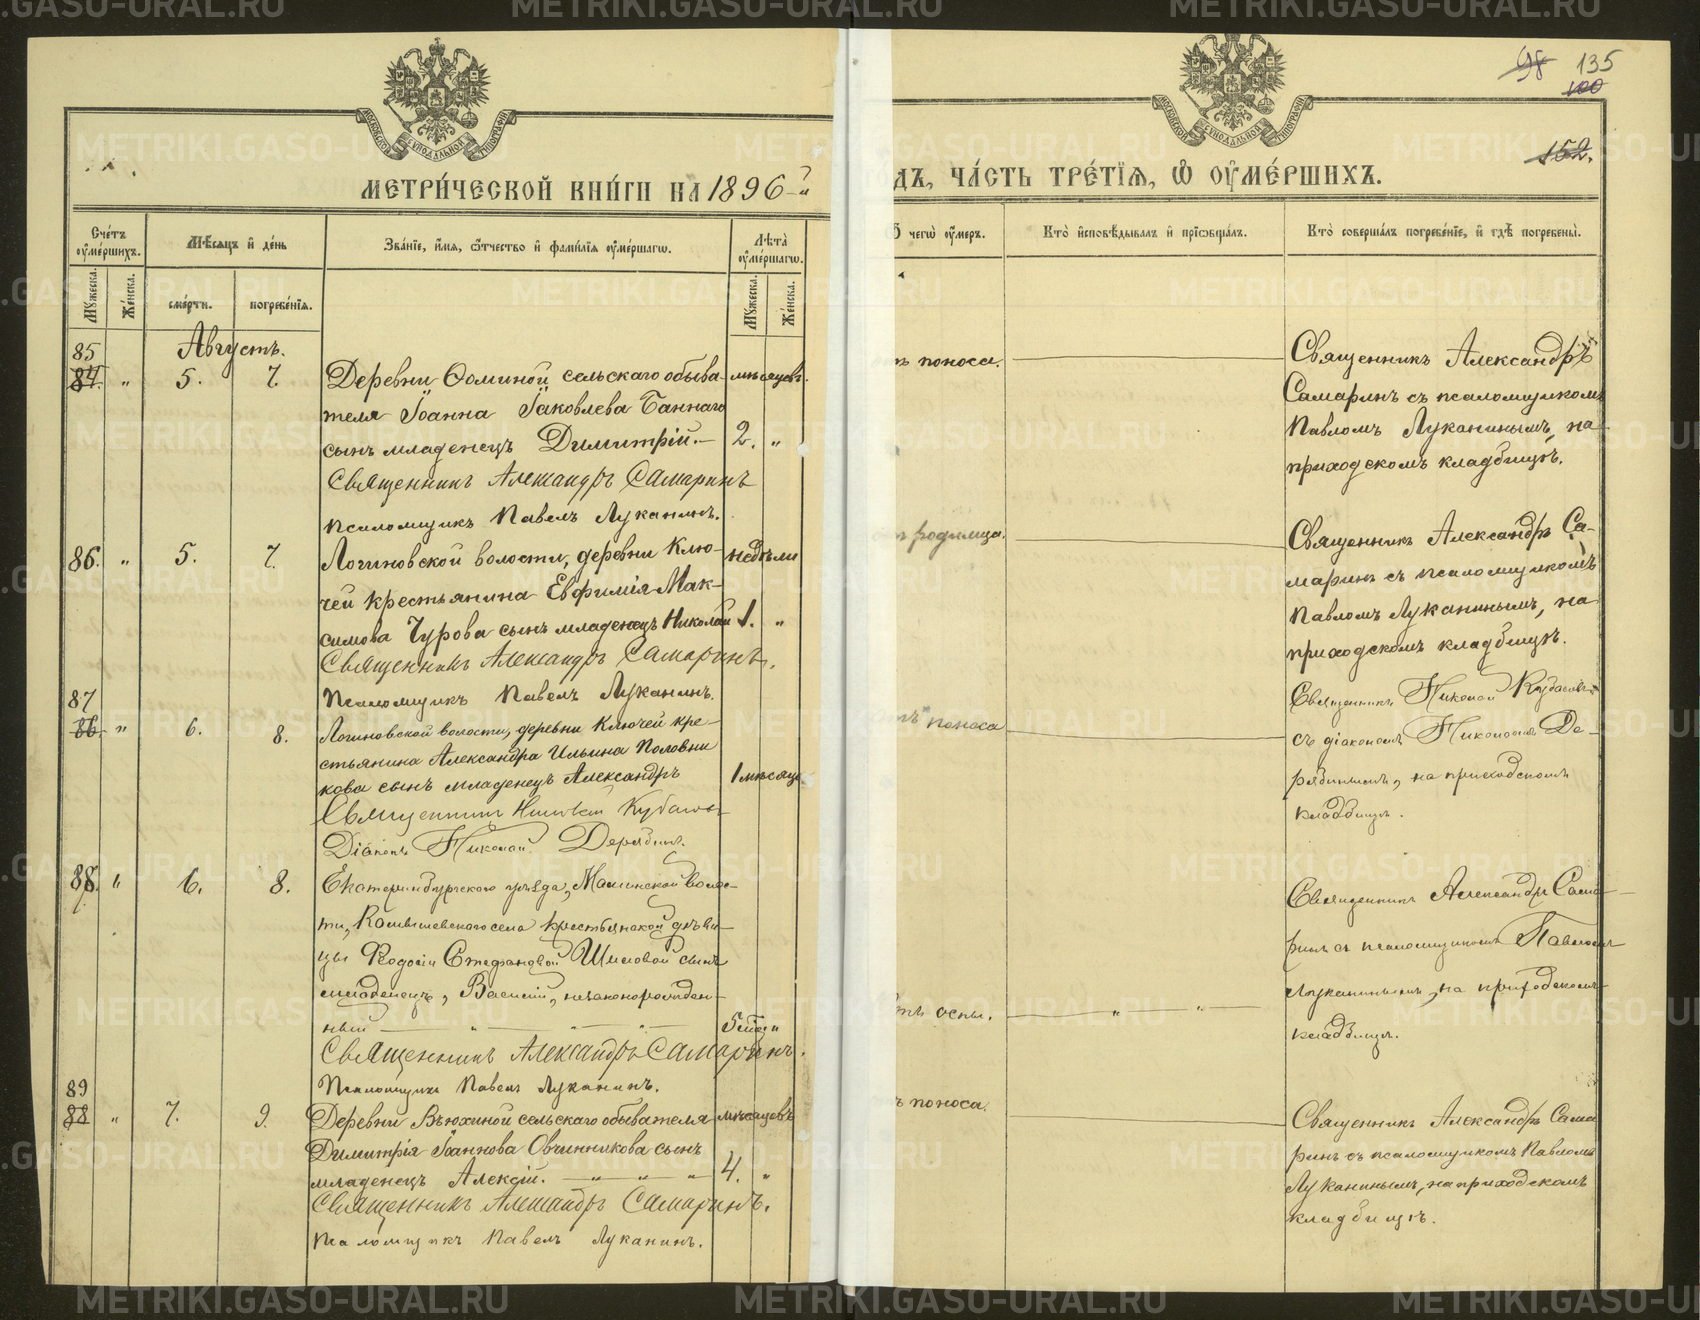 METRIKI.GASO-URAL.RU
98 135
100
152.
МОСКОВСКОЙ СѴНОДАЛЬНОЙ ТИПОГРАФІИ
МОСКОВСКОЙ СѴНОДАЛЬНОЙ ТИПОГРАФІИ
МЕТРИ́ЧЕСКОЙ КНИ́ГИ НА 1896 г.
ДЪ, ЧА́СТЬ ТРЕ́ТІѦ, Ѡ҆ ОУ҆МЕ́РШИХЪ.
Сче́тъ оу҆ме́ршихъ.
Мꙋжеска.
Же́нска.
Мѣ́сяцъ и҆ де́нь
сме́рти.
погребе́нїѧ.
Зва́нїе, и҆́мѧ, ѻ҆́тчество и҆ фами́лїѧ оу҆ме́ршагѡ.
Лѣ́та оу҆ме́ршагѡ.
Мꙋжеска.
Же́нска.
Ѿ чегѡ̀ оу҆́меръ.
Кто̀ и҆сповѣ́дывалъ и҆ прїѡбща́лъ.
Кто̀ соверша́лъ погребе́нїе, и҆ гдѣ̀ погребены̀.
Августъ.
85
84. " 5. 7. Деревни Ѳоминой сельскаго обыва- мѣсяцевъ.
теля Іоанна Іаковлева Баннаго
сынъ младенецъ Димитрій.— 2. "
Священникъ Александръ Самаринъ
Псаломщикъ Павелъ Луканинъ.
поноса.
Священникъ Александръ
Самаринъ съ псаломщикомъ
Павломъ Луканинымъ, на
приходскомъ кладбищѣ.
86. " 5. 7. Логиновской волости, деревни Клю- недѣли
чей крестьянина Евфимія Мак-
симова Чурова сынъ младенецъ Николай 1. "
Священникъ Александръ Самаринъ.
Псаломщикъ Павелъ Луканинъ.
родимца.
Священникъ Александръ Са-
маринъ съ псаломщикомъ
Павломъ Луканинымъ, на
приходскомъ кладбищѣ.
87
86. " 6. 8. Логиновской волости, деревни Ключей кре-
стьянина Александра Ильина Половни
кова сынъ младенецъ Александръ 1 мѣсяцъ
Священникъ Николай
Діаконъ Николай Дерябинъ.
поноса
Священникъ Николай
съ діакономъ Николаемъ Де-
рябинымъ, на приходскомъ
кладбищѣ.
88. " 6. 8. Екатеринбургскаго уѣзда, волос-
ти, села крестьянской дѣви-
цы Ѳеодосіи Стефановой Шиловой сынъ
младенецъ, Василій, незаконорожден-
ный — " — " — " — 5 "
Священникъ Александръ Самаринъ.
Псаломщикъ Павелъ Луканинъ.
оспы. — " — " —
Священникъ Александръ Сама-
ринъ съ псаломщикомъ Павломъ
Луканинымъ, на приходскомъ
кладбищѣ.
89
88 " 7. 9. Деревни Вьюхиной сельскаго обывателя мѣсяцевъ
Димитрія Іоаннова Овчинникова сынъ
младенецъ Алексій. — " — " — " 4. "
Священникъ Александръ Самаринъ.
Псаломщикъ Павелъ Луканинъ.
поноса.
Священникъ Александръ Сама
ринъ съ псаломщикомъ Павломъ
Луканинымъ, на приходскомъ
кладбищѣ.